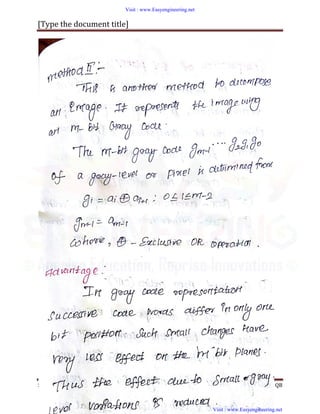 Visit : www.Easyengineering.net
[Type the document title]
Method II :-
This is another method to decompose
an Image. It represents the image using
an m- Bit Gray Code.
The m-bit gray code gm-1 ... g2 g1 g0
of a gray-level or pixel is determined from
gi = ai ⊕ ai+1 ; 0 ≤ i ≤ m-2
gm-1 = am-1
where, ⊕ - Exclusive OR operation.
Advantage :
In gray code representation
Successive code words differ in only one
bit position. Such small changes have
very less effect on the 'm' bit planes.
Thus the effect due to small gray
98
level variations is reduced
Visit : www.EasyEngineering.net